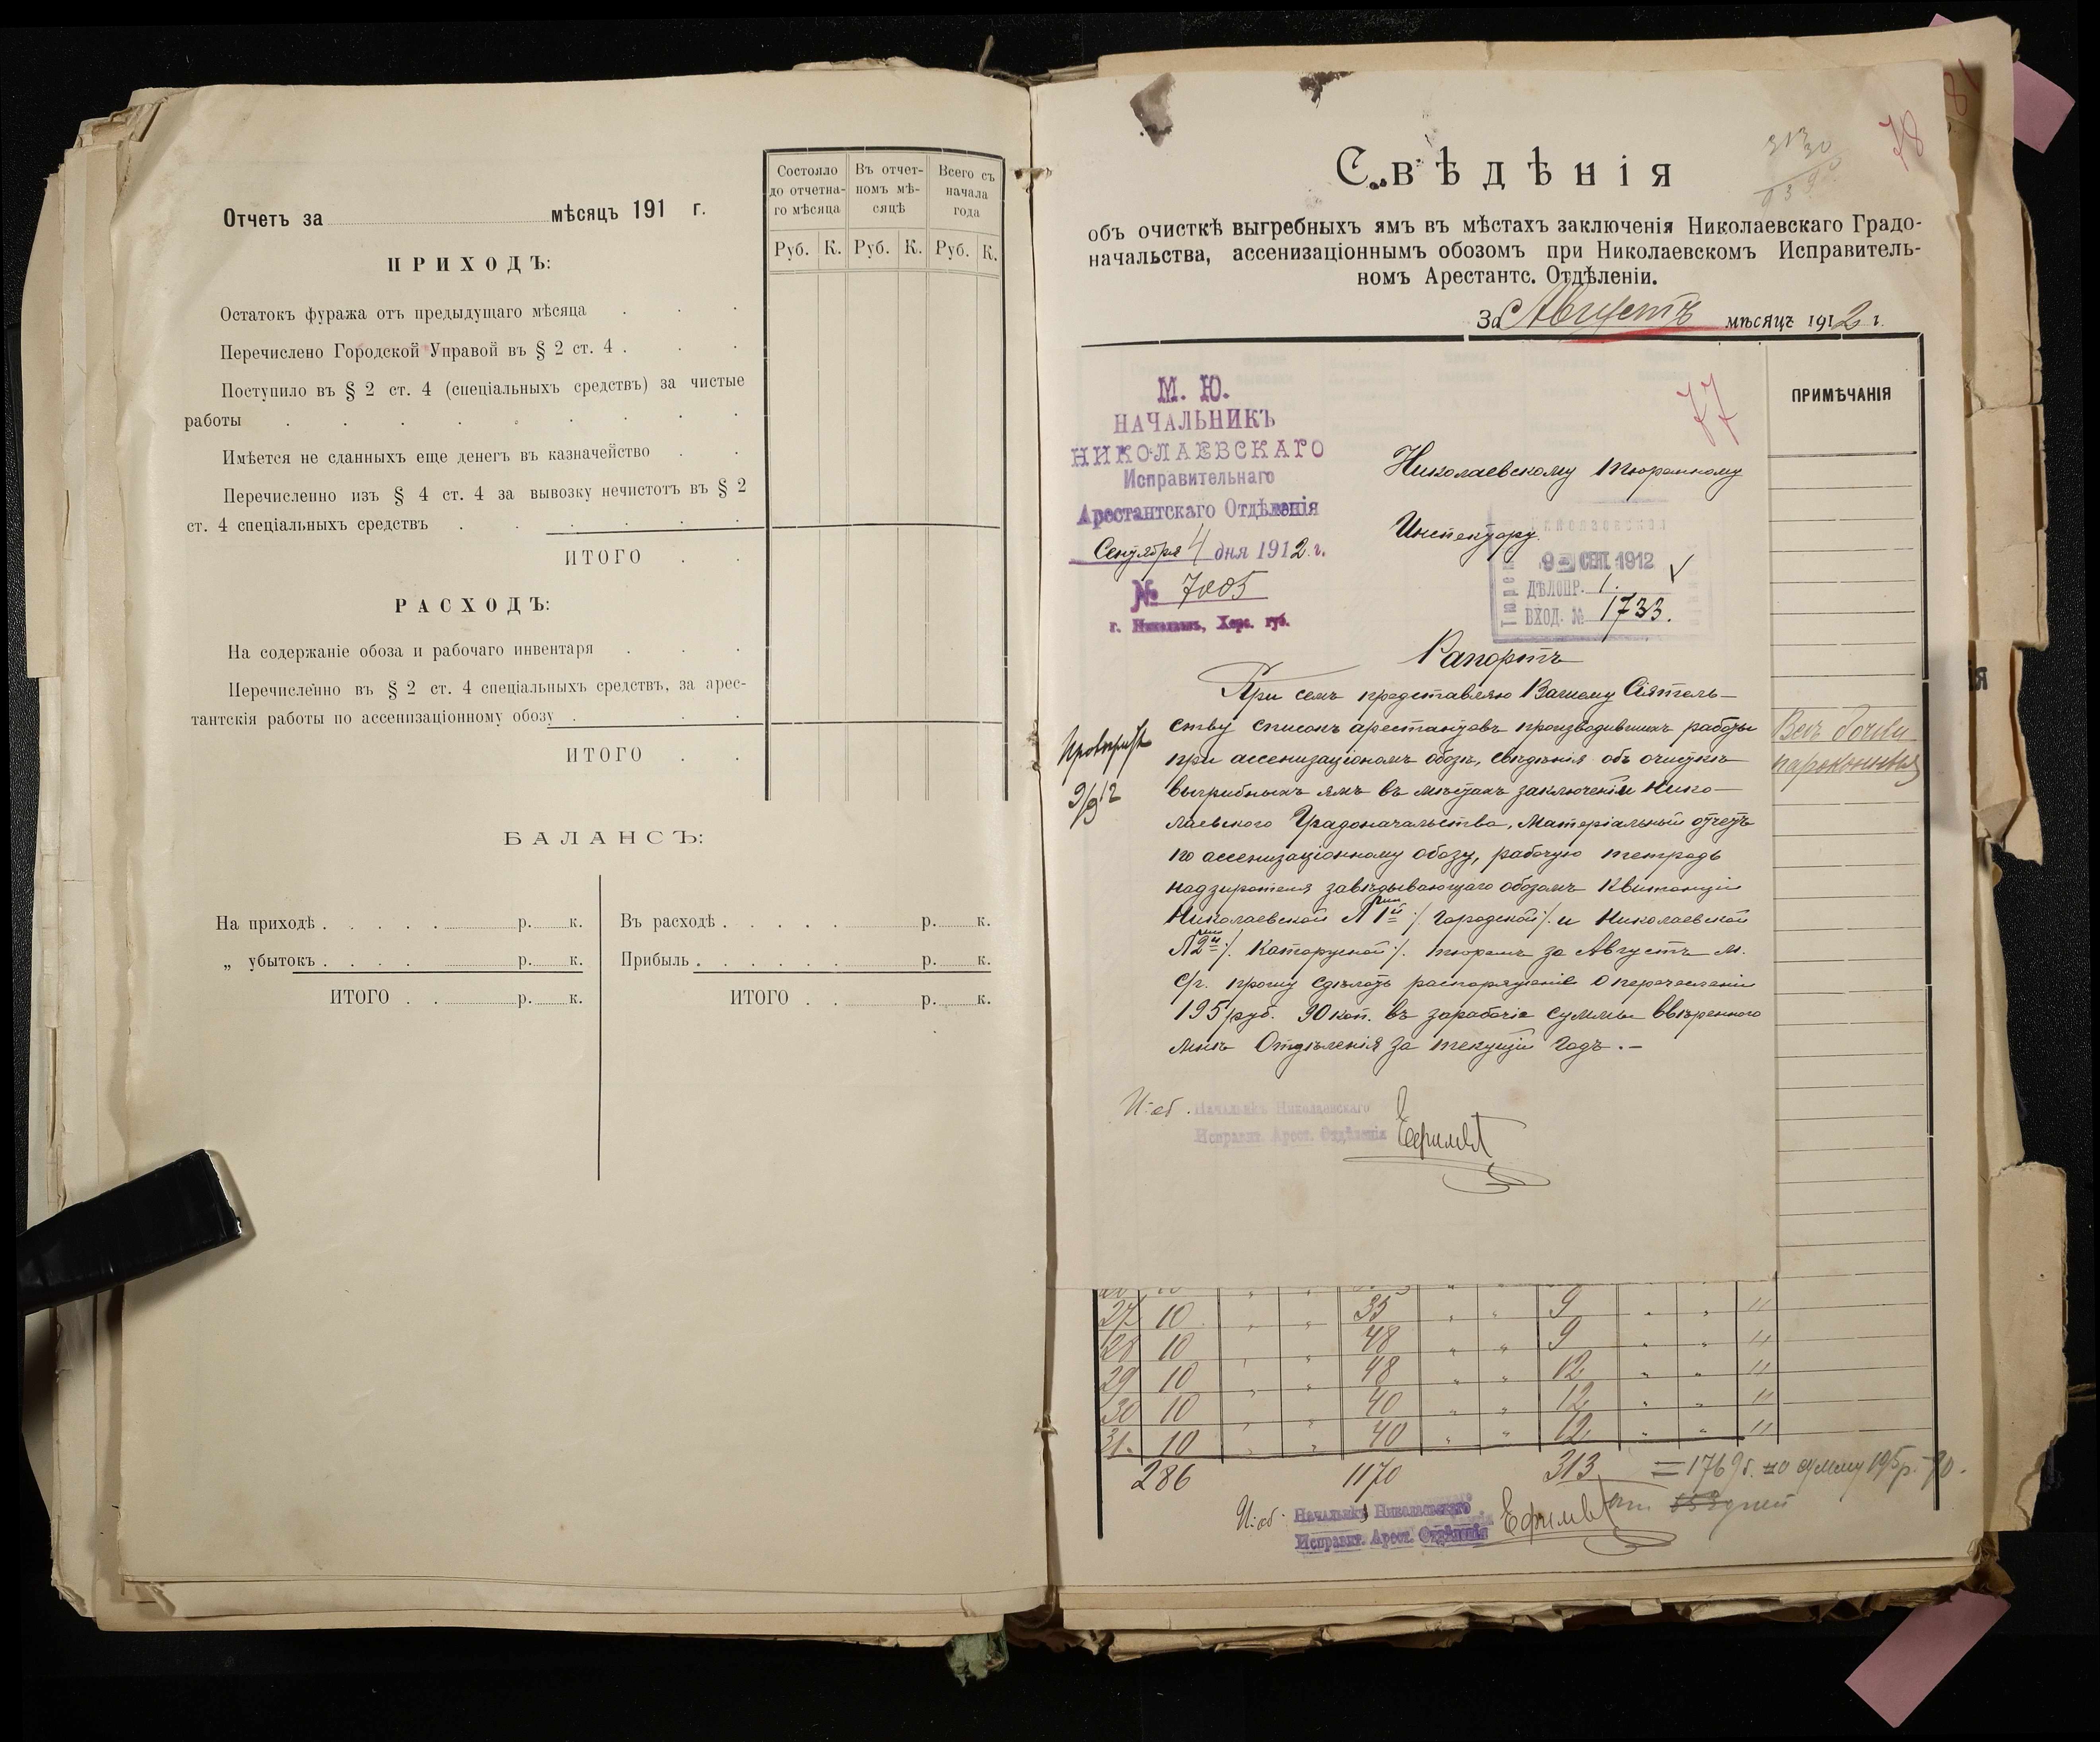 Отчетъ за мѣсяцъ 191 г.
Состояло до отчетна-го мѣсяца
Въ отчет-номъ мѣ-сяцѣ
Всего съ начала года
Руб. К. Руб. К. Руб. К.
ПРИХОДЪ:
Остатокъ фуража отъ предыдущаго мѣсяца . . .
Перечислено Городской Управой въ § 2 ст. 4 . . .
Поступило въ § 2 ст. 4 (спеціальныхъ средствъ) за чистые
работы . . . . . . . .
Имѣется не сданныхъ еще денегъ въ казначейство . .
Перечисленно изъ § 4 ст. 4 за вывозку нечистотъ въ § 2
ст. 4 спеціальныхъ средствъ . . . . . .
ИТОГО . .
РАСХОДЪ:
На содержаніе обоза и рабочаго инвентаря . . .
Перечисленно въ § 2 ст. 4 спеціальныхъ средствъ, за арес-
тантскія работы по ассенизаціонному обозу . . .
ИТОГО . .
БАЛАНСЪ:
На приходѣ . . . . . р. к.
„ убытокъ . . . . р. к.
ИТОГО . . р. к.
Въ расходѣ . . . . . р. к.
Прибыль . . . . . . р. к.
ИТОГО . . р. к.
78
Свѣдѣнія
объ очисткѣ выгребныхъ ямъ въ мѣстахъ заключенія Николаевскаго Градо-
начальства, ассенизаціоннымъ обозомъ при Николаевскомъ Исправитель-
номъ Арестантс. Отдѣленіи.
За Августъ мѣсяцъ 1912 г.
ПРИМѢЧАНІЯ
77
М. Ю.
НАЧАЛЬНИКЪ
НИКОЛАЕВСКАГО
Исправительнаго
Арестантскаго Отдѣленія
Сентября 4 дня 1912 г.
№ 7005
г. Николаевъ, Херс. губ.
Николаевскому Тюремному
Инспектору.
9 СЕН. 1912
ДѢЛОПР. 1.
ВХОД. № 1733.
Рапортъ
При семъ представляю Вашему Сіятель-
ству списокъ арестантовъ производившихъ работы
при ассенизаціономъ обозѣ, свѣдѣнія объ очисткѣ
выгребныхъ ямъ въ мѣстахъ заключенія Нико-
лаевского Градоначальства, Матеріальный отчетъ
по ассенизаціонному обозу, рабочую тетрадь
надзирателя завѣдывающаго обозомъ квитанціи
Николаевской № 1й /. Городской ./. и Николаевской
№ 2й ./. Каторжной ./. тюремъ за Августъ м.
с/г. прошу сдѣлать распоряженіе о перечисленіи
195 руб. 90 коп. въ зарабочіе суммы ввѣренного
мнѣ Отдѣленія за текущій годъ. –
9/9 12
Всѣ бочки
пароконныя
И: об. Начальникъ Николаевскаго
Исправит. Арест. Отдѣленія Ефимов
27 10 „ „ 35 „ „ 9 „ „ „
28 10 „ „ 48 „ „ 9 „ „ „
29 10 „ „ 48 „ „ 12 „ „ „
30 10 „ „ 40 „ „ 12 „ „ „
31. 10 „ „ 40 „ „ 12 „ „ „
286 1170 313 = 1769 б. на сумму 195 р. 90.
И: об. Начальникъ Николаевскаго
Исправит. Арест. Отдѣленія Ефимов